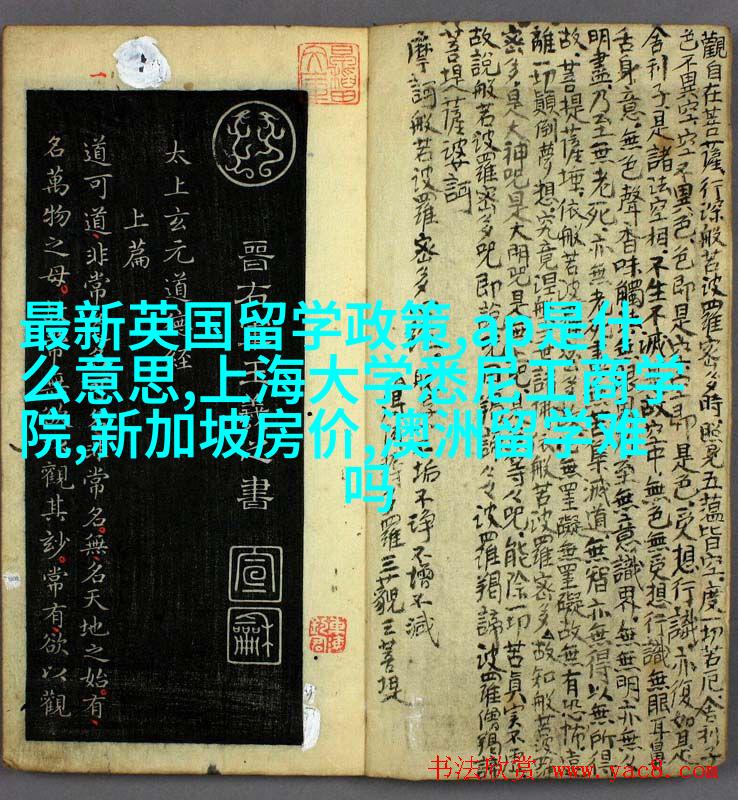 最新英国留学政策,ap是什
么意思,上海大学悉尼工商学
院,新加坡房价,澳洲留学难
吗
觀自在菩薩行深般若波羅蜜多時照見五蘊皆空度一切苦厄舍利子
色不異空空不異色色即是空即是色受想行識亦復如是
舍利子是諸法空相不生不滅故空中無色無受想行識無眼耳鼻
舌身意無色聲香味觸無意識界無無明亦無
明盡乃至無老死亦無老集滅道無智亦無得以無所得
故菩提薩埵依般若波無罣礙無罣礙故無有恐怖遠
離一切顛倒夢想究竟涅般若波羅蜜多故知般若波羅
密多是大神咒是大明咒是等々咒能除一切苦真實不虛
故說般若波羅密多咒即說波羅揭諦波羅僧揭諦
菩提薩婆訶
摩訶般若波羅密多
垢不淨不增不減
羅三藐三菩提
晉右王羲之書
宣龢
太上玄元道德經
上篇
道可道非常常名無名天地之始有
名萬物之母觀其妙常有欲以觀
书法欣赏 www.yac8.com